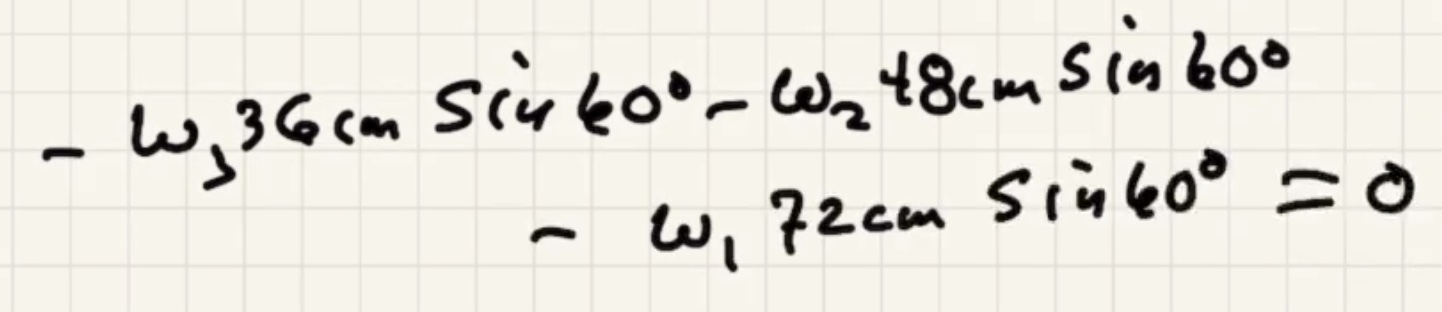 - ω₃ 36cm sin 60° - ω₂ 48cm sin 60°
- ω₁ 72cm sin 60° = 0